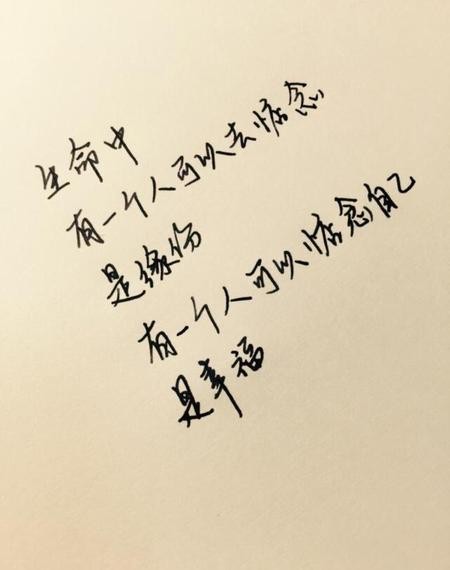 生命中
有一个人可以去惦念
是缘份
有一个人可以惦念自己
是幸福